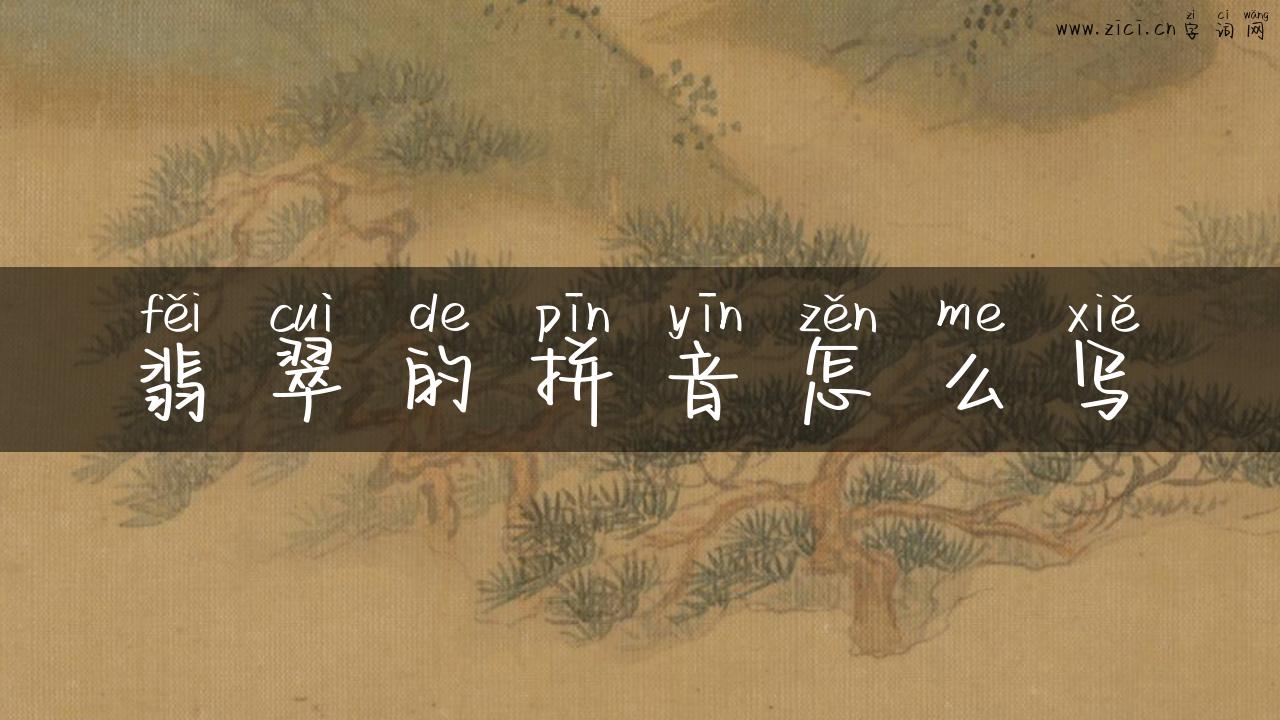 zì cí wǎng
www.zici.cn 字词网
fěi cuì de pīn yīn zěn me xiě
翡翠的拼音怎么写